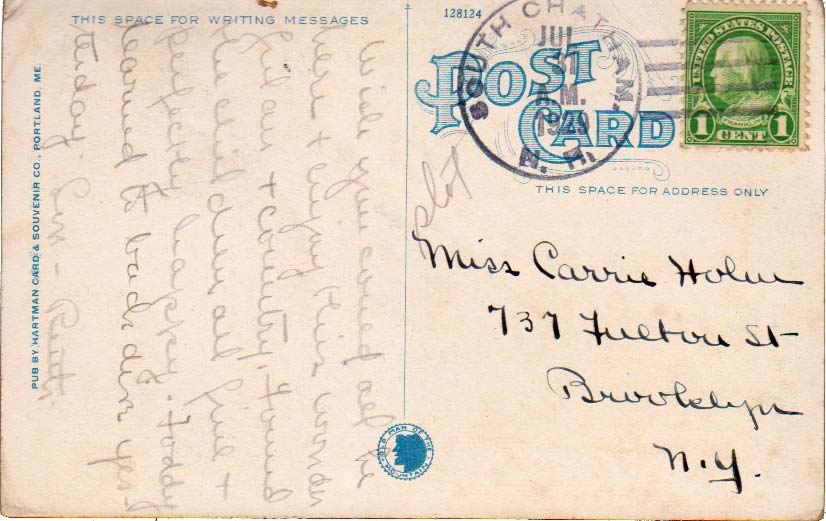 THIS SPACE FOR WRITING MESSAGES
128124
POST CARD
SOUTH CHATHAM, N. H.
JUL
31
A.M.
1929
UNITED STATES POSTAGE
FRANKLIN
1 CENT 1
THIS SPACE FOR ADDRESS ONLY
PUB BY HARTMAN CARD & SOUVENIR CO., PORTLAND, ME
Wish you could all be
here & enjoy this wonder
ful air & country. Found
the children all fine &
perfectly happy. Teddy
learned to back dive yes-
terday. Sin - Ruth.
Miss Carrie Holm
737 Fulton St
Brooklyn
N.Y.
OLD MAN OF THE MOUNTAIN